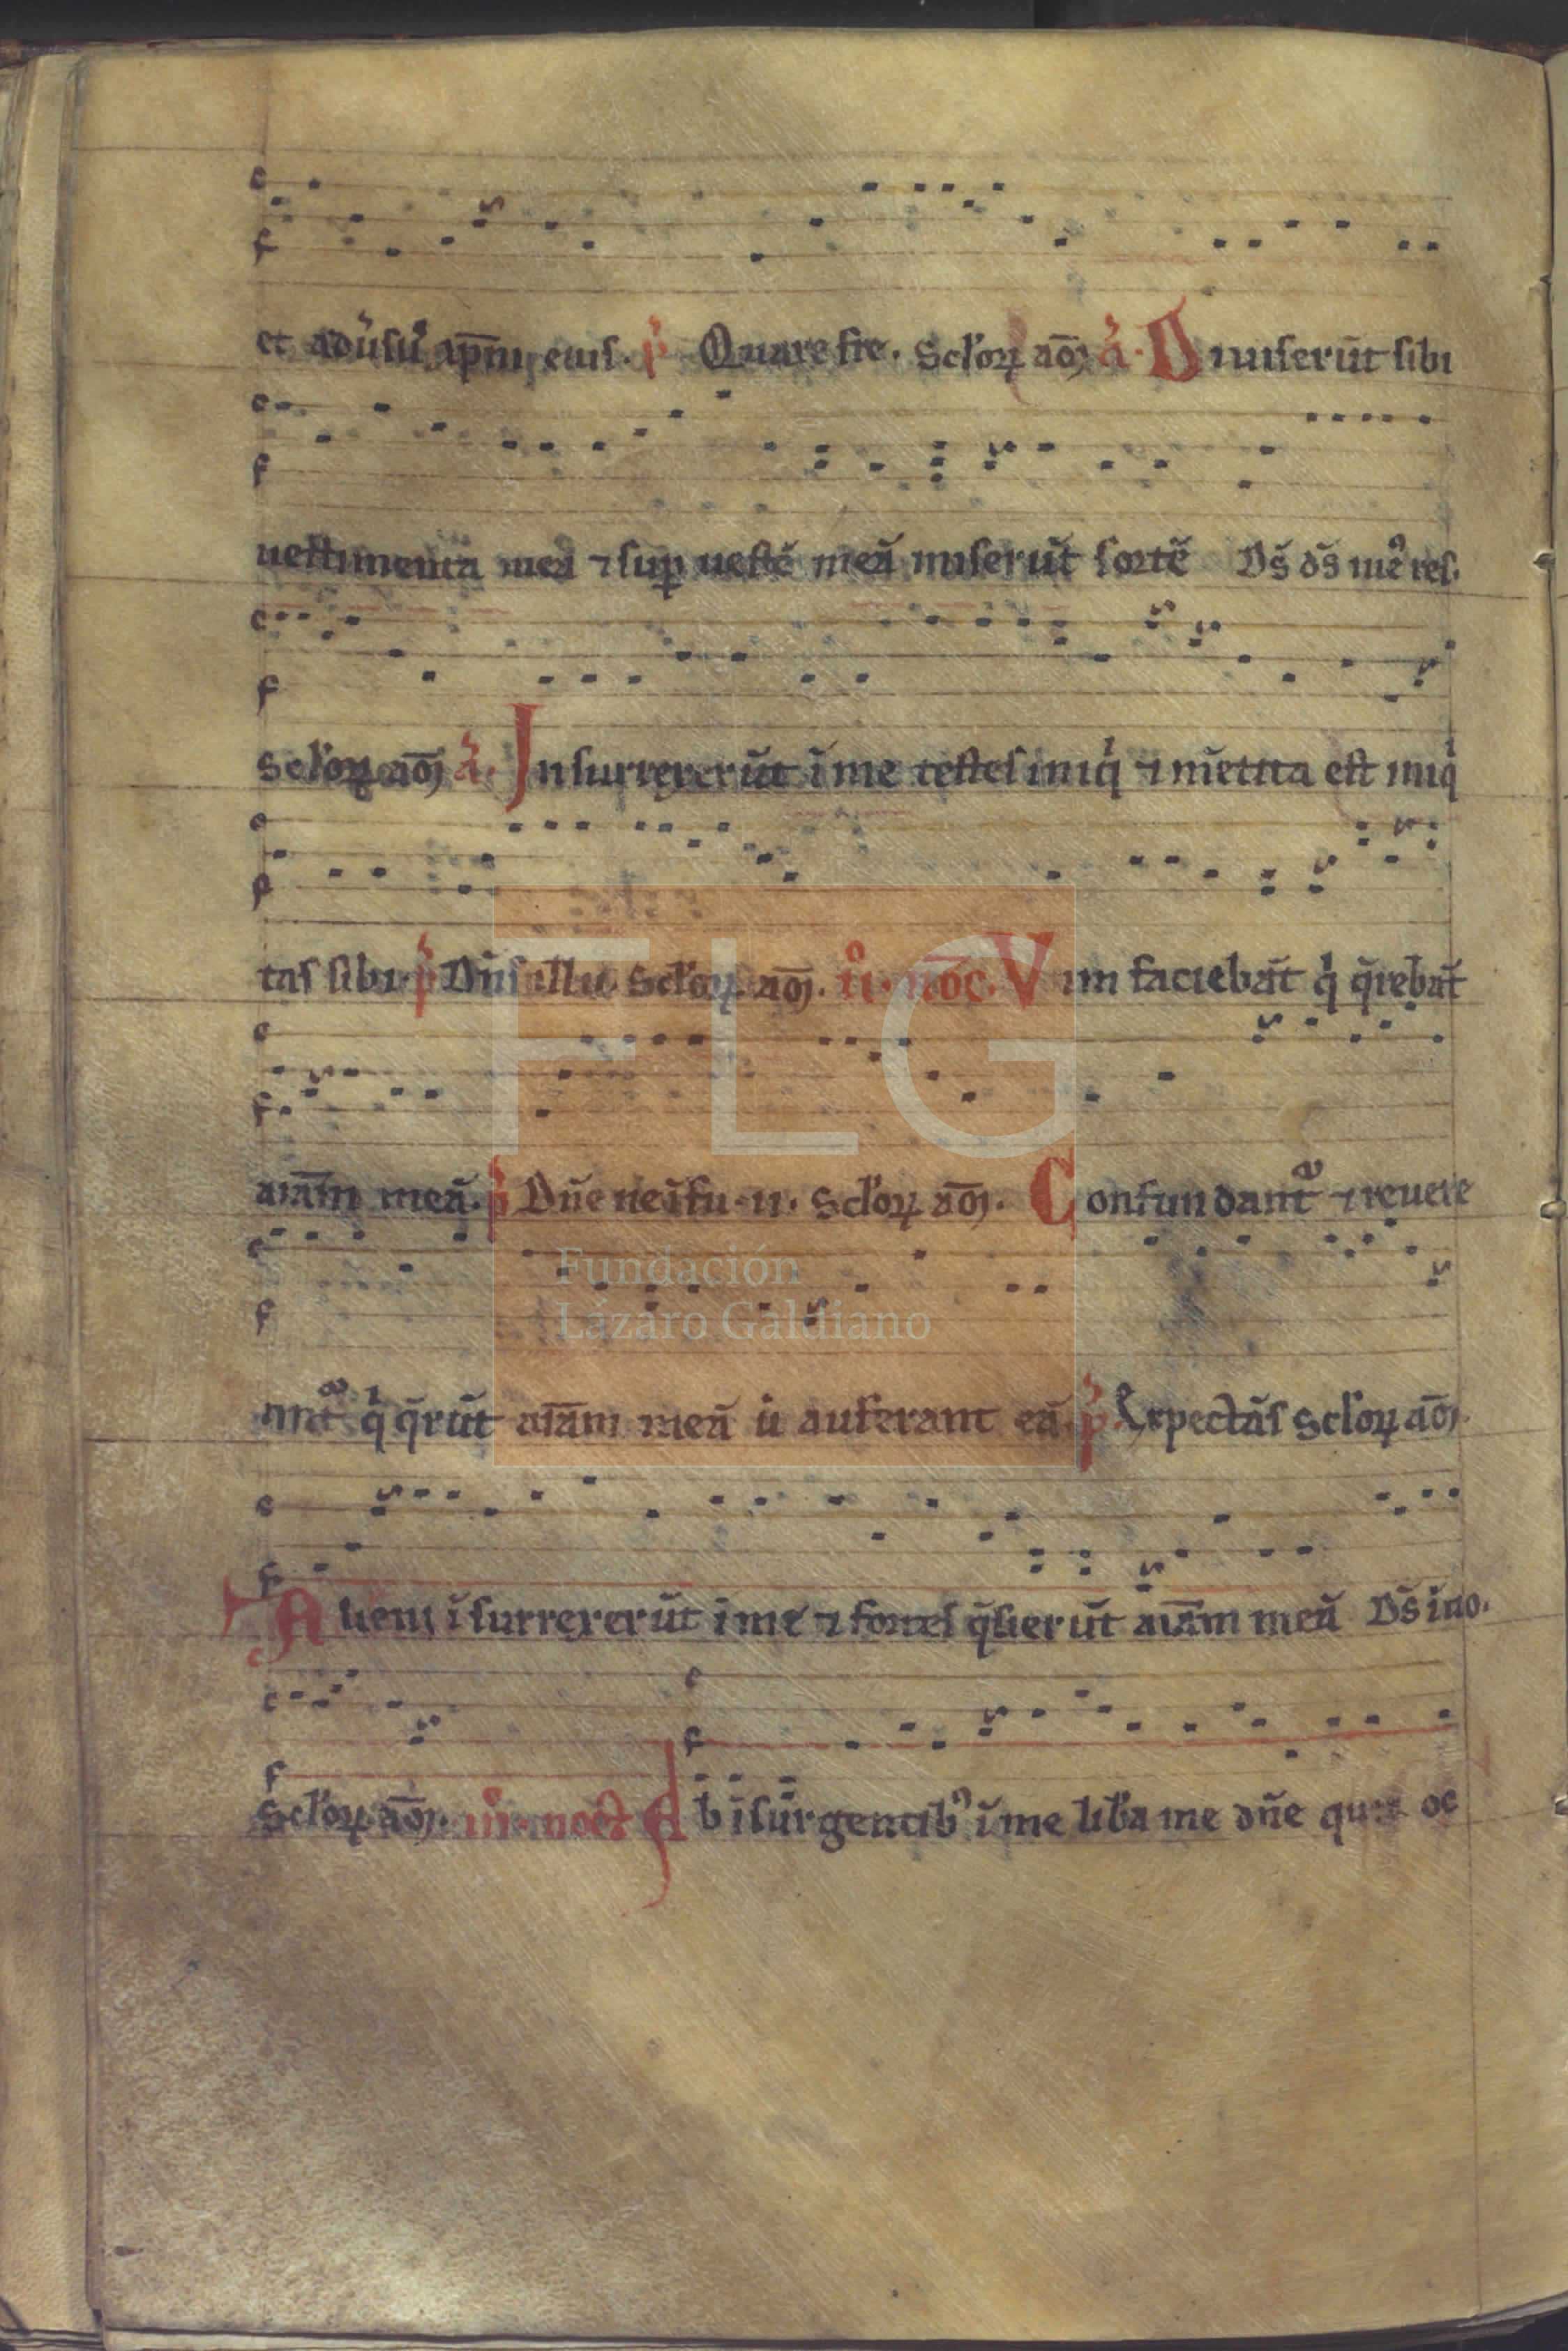 et adūsu᷒ xp̄m eius. p̓ Quare fre. Sclo̓ꝝ aō. a̓. Diuiserūt sibi
uestimenta mea ⁊ sup̱ uestē meā miserūt sortē Ds̄ ds̄ me᷒ res.
Sclo̓ꝝ aō. a̓. Insurrexerūt ī me testes iniqͥ ⁊ mētita est iniqͥ
tas sibi. p̓ Dn̄s illu. Sclo̓ꝝ aō. ii. noc̄. Vim faciebāt qͥ q̄rebāt
aīam meā. p̓ Dn̄e ne ī fu. ii. Sclo̓ꝝ aō. Confundant᷑ ⁊ reuere
ant᷑ qͥ q̄rūt aīam meā ut auferant eā. p̓ Expectās Sclo̓ꝝ aō.
Alieni īsurrexerūt ī me ⁊ fortes q̄sierūt aīam meā Ds̄ ī no.
Sclo̓ꝝ aō. iii. noct̄ Ab īsurgentib᷒ ī me lib̄a me dn̄e quia oc
FLG
Fundación
Lázaro Galdiano